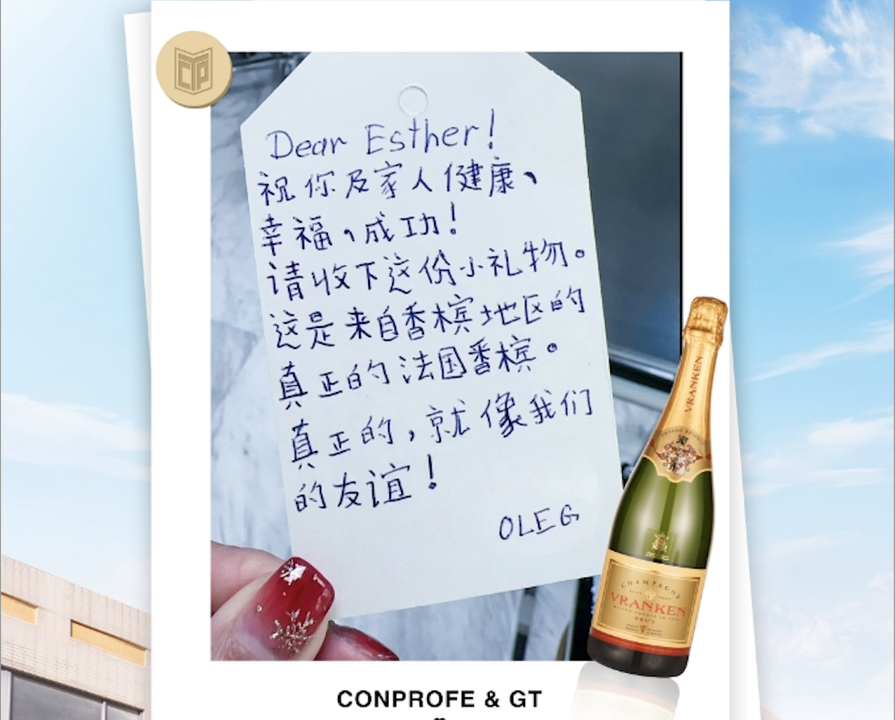 Dear Esther!
祝你及家人健康、
幸福,成功!
请收下这份小礼物。
这是来自香槟地区的
真正的法国香槟。
真正的,就像我们
的友谊!
OLEG
VRANKEN
CHAMPAGNE
VRANKEN
BRUT
CONPROFE & GT